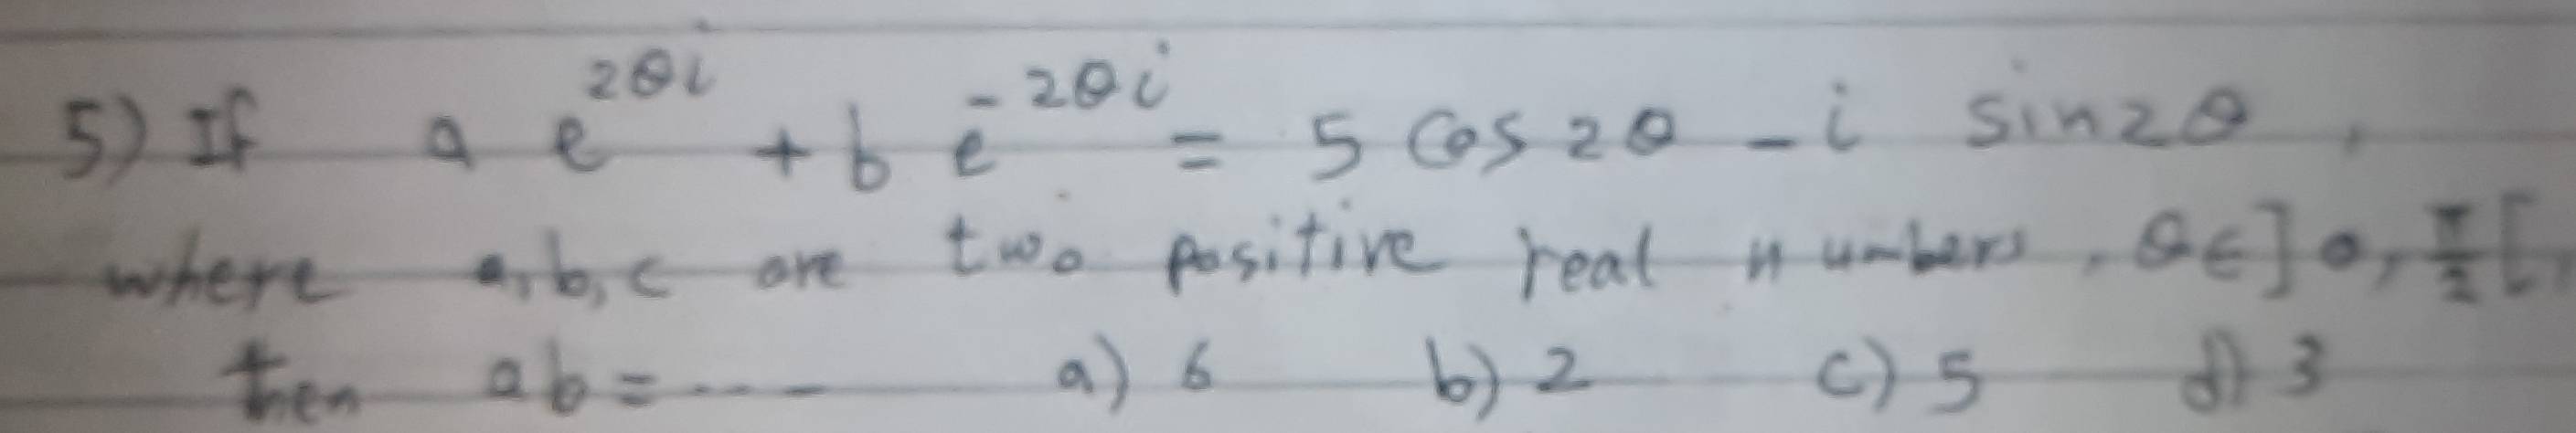 5) If a e^{2θi} + b e^{-2θi} = 5 cos 2θ - i sin 2θ,
where a,b,c are two positive real numbers, θ∈]0, π/2[,
then ab = ---- a) 6 b) 2 c) 5 d) 3